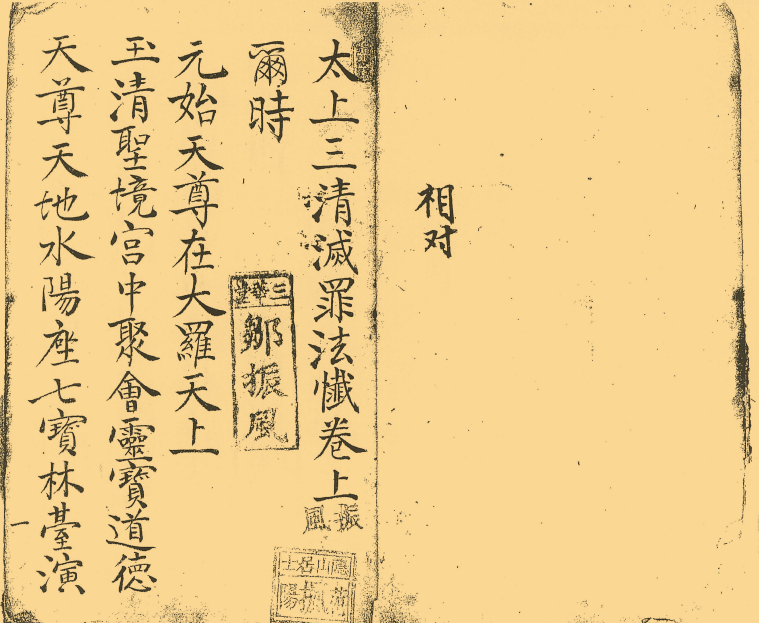 相对
太上三清滅罪法懺卷上
振風
爾時
三華堂
鄒振風
元始天尊在大羅天上
玉清聖境宮中聚會靈寶道德
天尊天地水陽座七寶林臺演
一